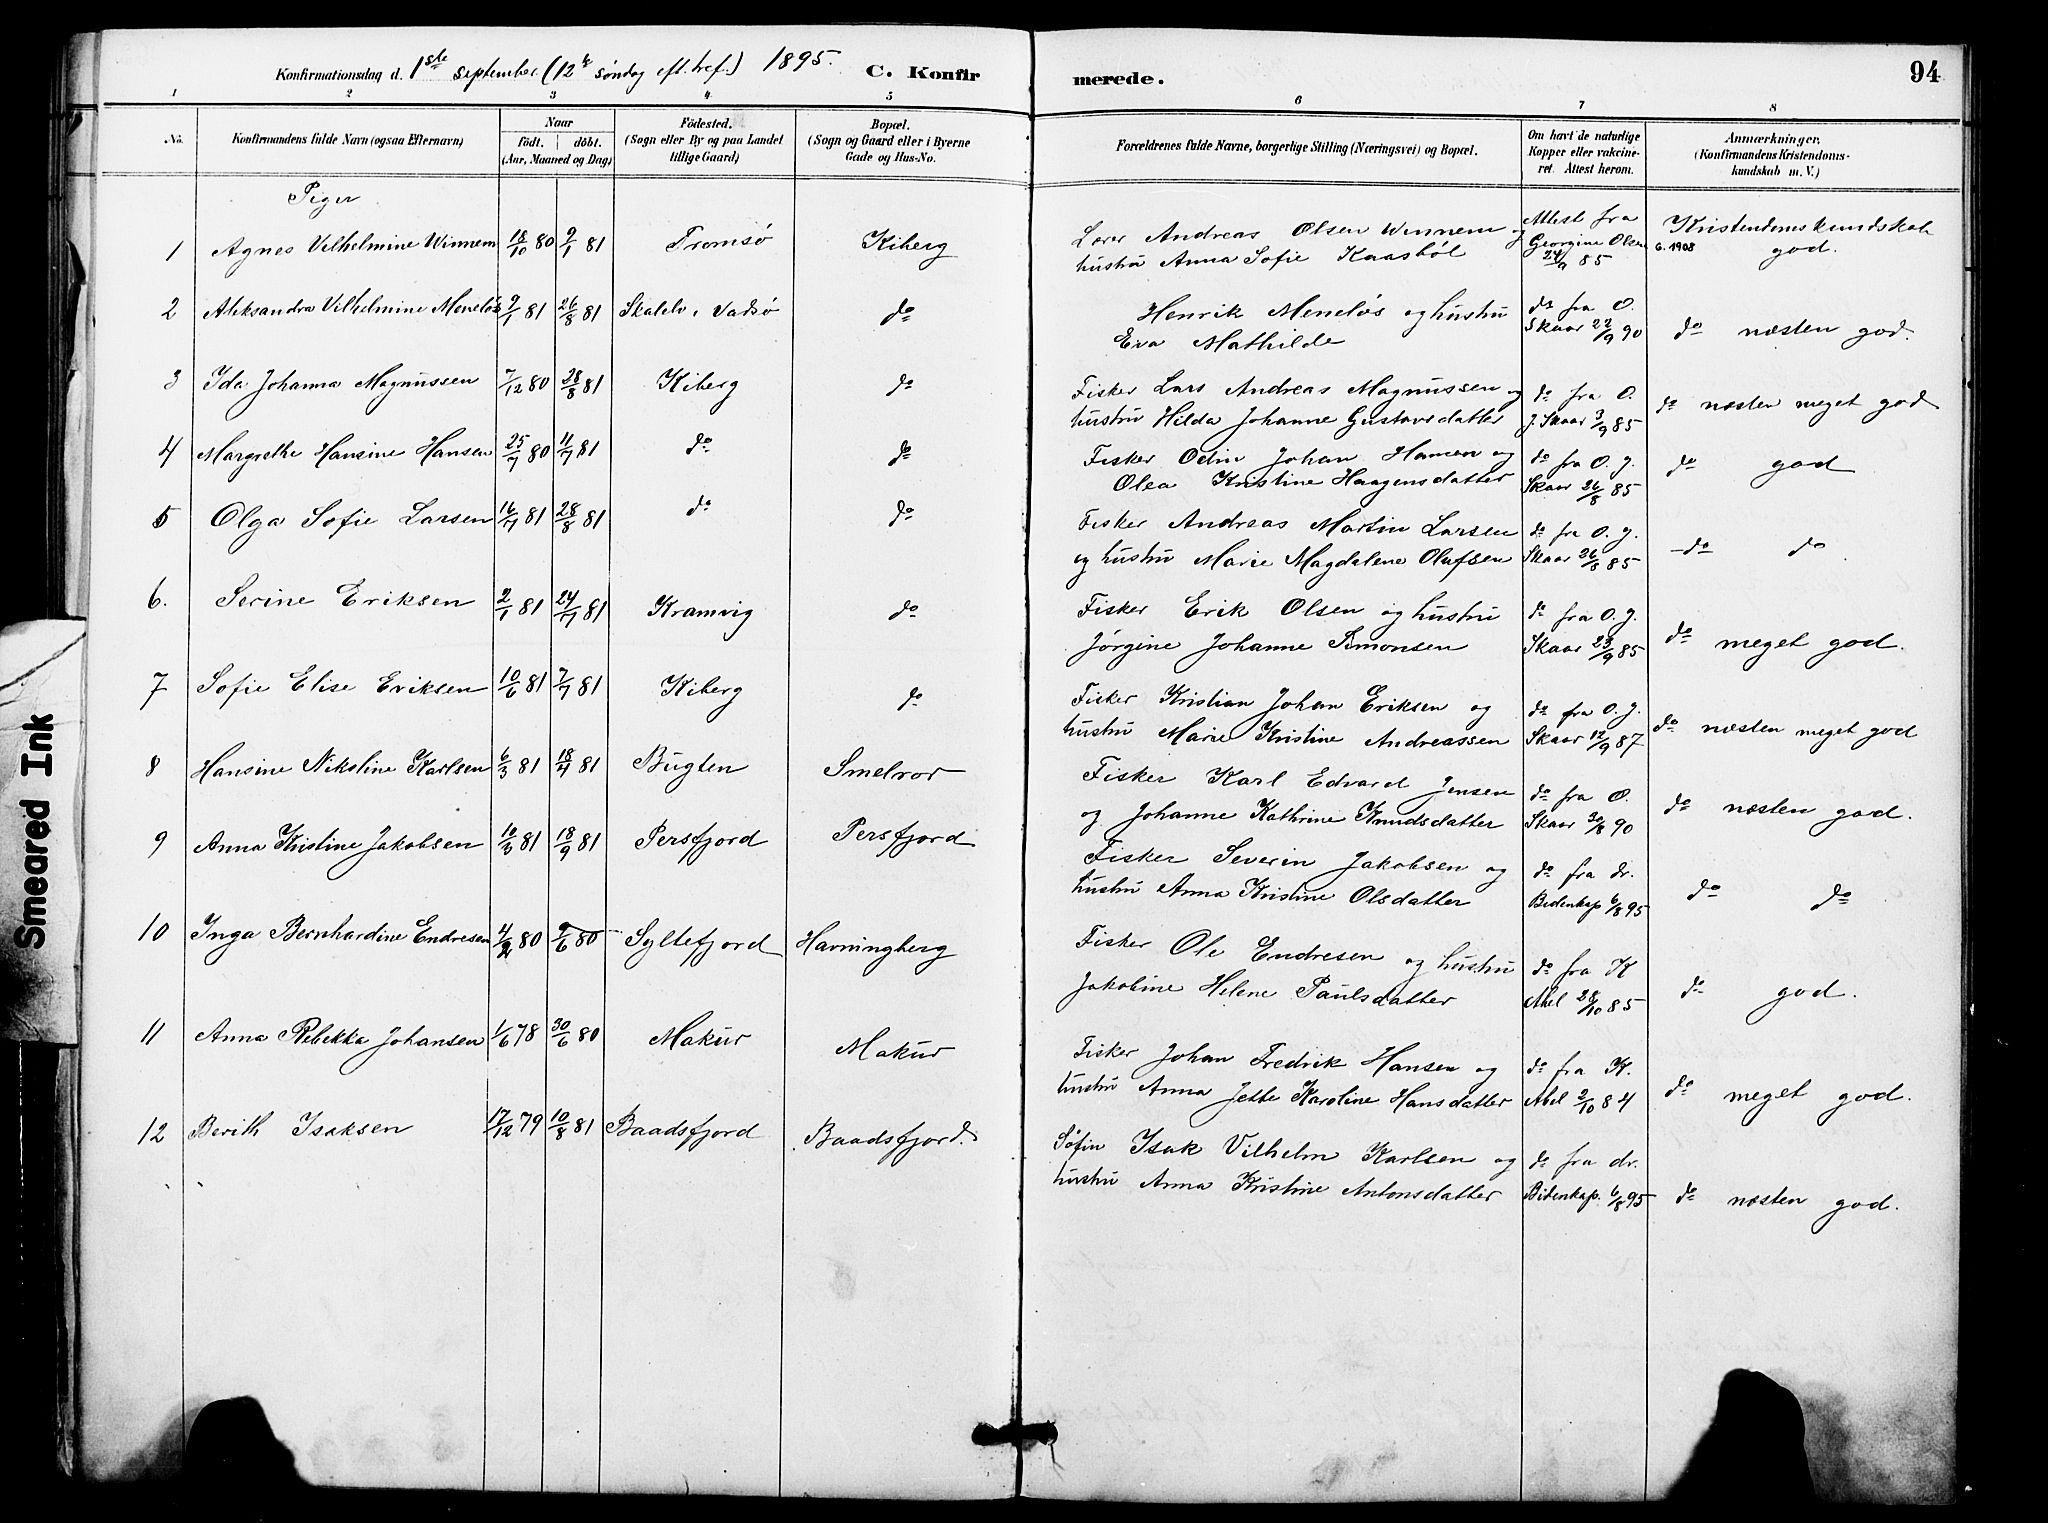 Konfirmationsdag d. 1ste september (12te søndag eft. tref.) 1895. C. Konfirmerede. 94
1 2 3 4 5 6 7 8
No. Konfirmandens fulde Navn (ogsaa Efternavn) Naar födt. döbt. (Aar, Maaned og Dag) Födested. (Sogn eller By og paa Landet tillige Gaard) Bopæl. (Sogn og Gaard eller i Byerne Gade og Hus-No. Forældrenes fulde Navne, borgerlige Stilling (Næringsvei) og Bopæl. Om havt de naturlige Kopper eller vakcineret. Attest herom. Anmærkninger. (Konfirmandens Kristendomskundskab m. V.)
Piger
1 Agnes Vilhelmine Winnem 18/10 80 9/1 81 Tromsø Kiberg Lærer Andreas Olsen Winnem og hustru Anna Sofie Kaasbøl Attest fra Georgine Olsen 24/9 85 Kristendomskundskab god. 6.1908
2 Aleksandra Vilhelmine Meneløs 9/1 81 26/8 81 Skalelv, Vadsø do Henrik Meneløs og hustru Eva Mathilde do fra O. Skaar 22/9 90 do næsten god.
3 Ida Johanna Magnussen 7/12 80 28/8 81 Kiberg do Fisker Lars Andreas Magnussen og hustru Hilda Johanne Gustavsdatter do fra O. J. Skaar 3/9 85 do næsten meget god
4 Margrethe Hansine Hansen 25/7 80 11/7 81 do do Fisker Odin Johan Hansen og Olea Kristine Haagensdatter do fra O. J. Skaar 26/8 85 do god
5 Olga Sofie Larsen 16/7 81 28/8 81 do do Fisker Andreas Martin Larsen og hustru Marie Magdalene Olufsen do fra O. J. Skaar 26/8 85 do do
6. Serine Eriksen 2/1 81 24/7 81 Kramvig do Fisker Erik Olsen og hustru Jørgine Johanne Simonsen do fra O. J. Skaar 23/9 85 do meget god.
7 Sofie Elise Eriksen 10/6 81 7/7 81 Kiberg do Fisker Kristian Johan Eriksen og hustru Marie Kristine Andreassen do fra O. J. Skaar 12/9 87 do næsten meget god
8 Hansine Nikoline Karlsen 6/3 81 18/4 81 Bugten Smelror Fisker Karl Edvard Jensen og Johanne Kathrine Knudsdatter do fra O. Skaar 30/8 90 do næsten god.
9 Anna Kristine Jakobsen 10/3 81 18/9 81 Persfjord Persfjord Fisker Severin Jakobsen og hustru Anna Kristine Olsdatter do fra dr. Bidenkap 6/8 95 do do
10 Inga Bernhardine Endresen 4/2 80 9/6 80 Syltefjord Havningberg Fisker Ole Endresen og hustru Jakobine Helene Paulsdatter do fra K Abel 28/10 85 do god.
11 Anna Rebekka Johansen 1/6 78 30/6 80 Makur Makur Fisker Johan Fredrik Hansen og hustru Anna Jette Karoline Hansdatter do fra K. Abel 2/10 84 do meget god.
12 Berith Isaksen 17/12 79 10/8 81 Baadsfjord Baadsfjord. Søfin Isak Vilhelm Karlsen og hustru Anna Kristine Antonsdatter do fra dr. Bidenkap. 6/8 95 do næsten god.
Smeared Ink